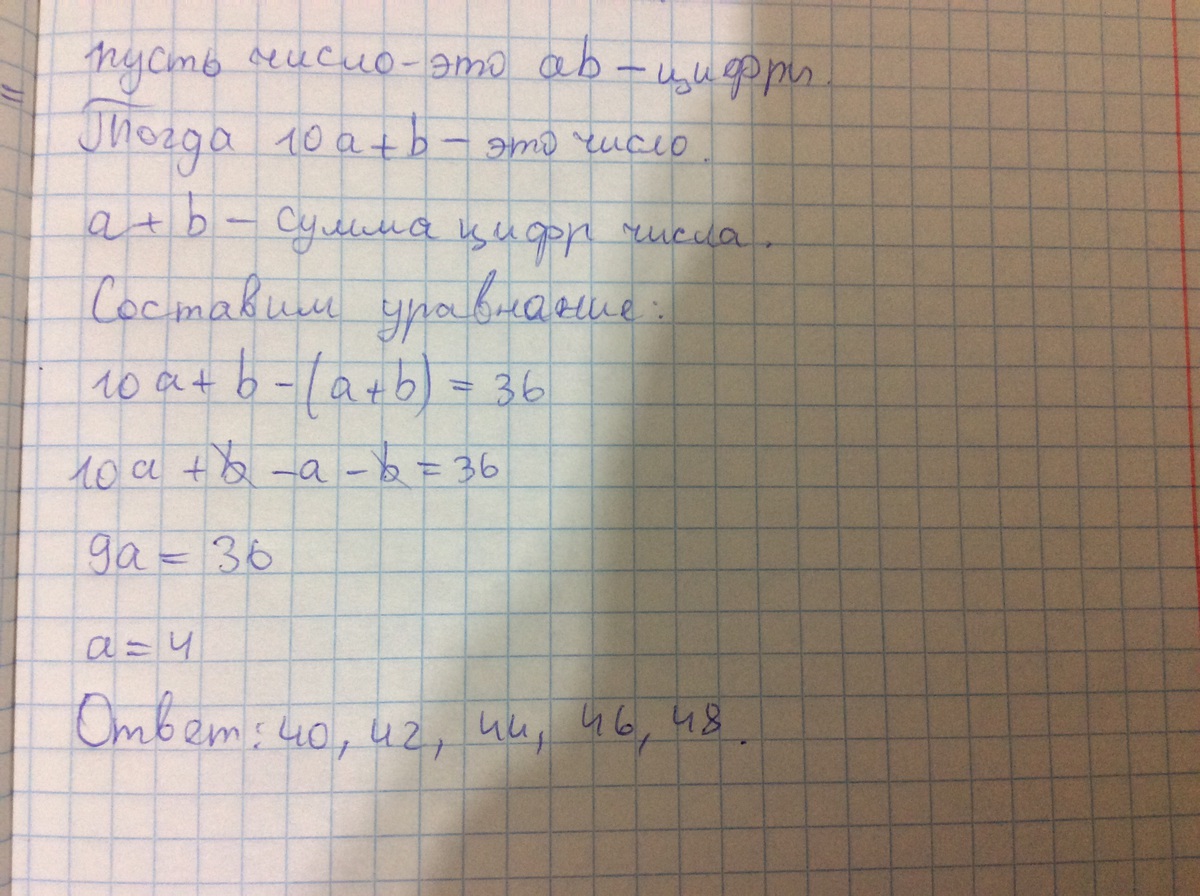 пусть число - это ab - цифры.
Тогда 10a + b - это число.
a + b - сумма цифр числа.
Составим уравнание:
10a + b - (a + b) = 36
10a + b - a - b = 36
9a = 36
a = 4
Ответ: 40, 42, 44, 46, 48.
=